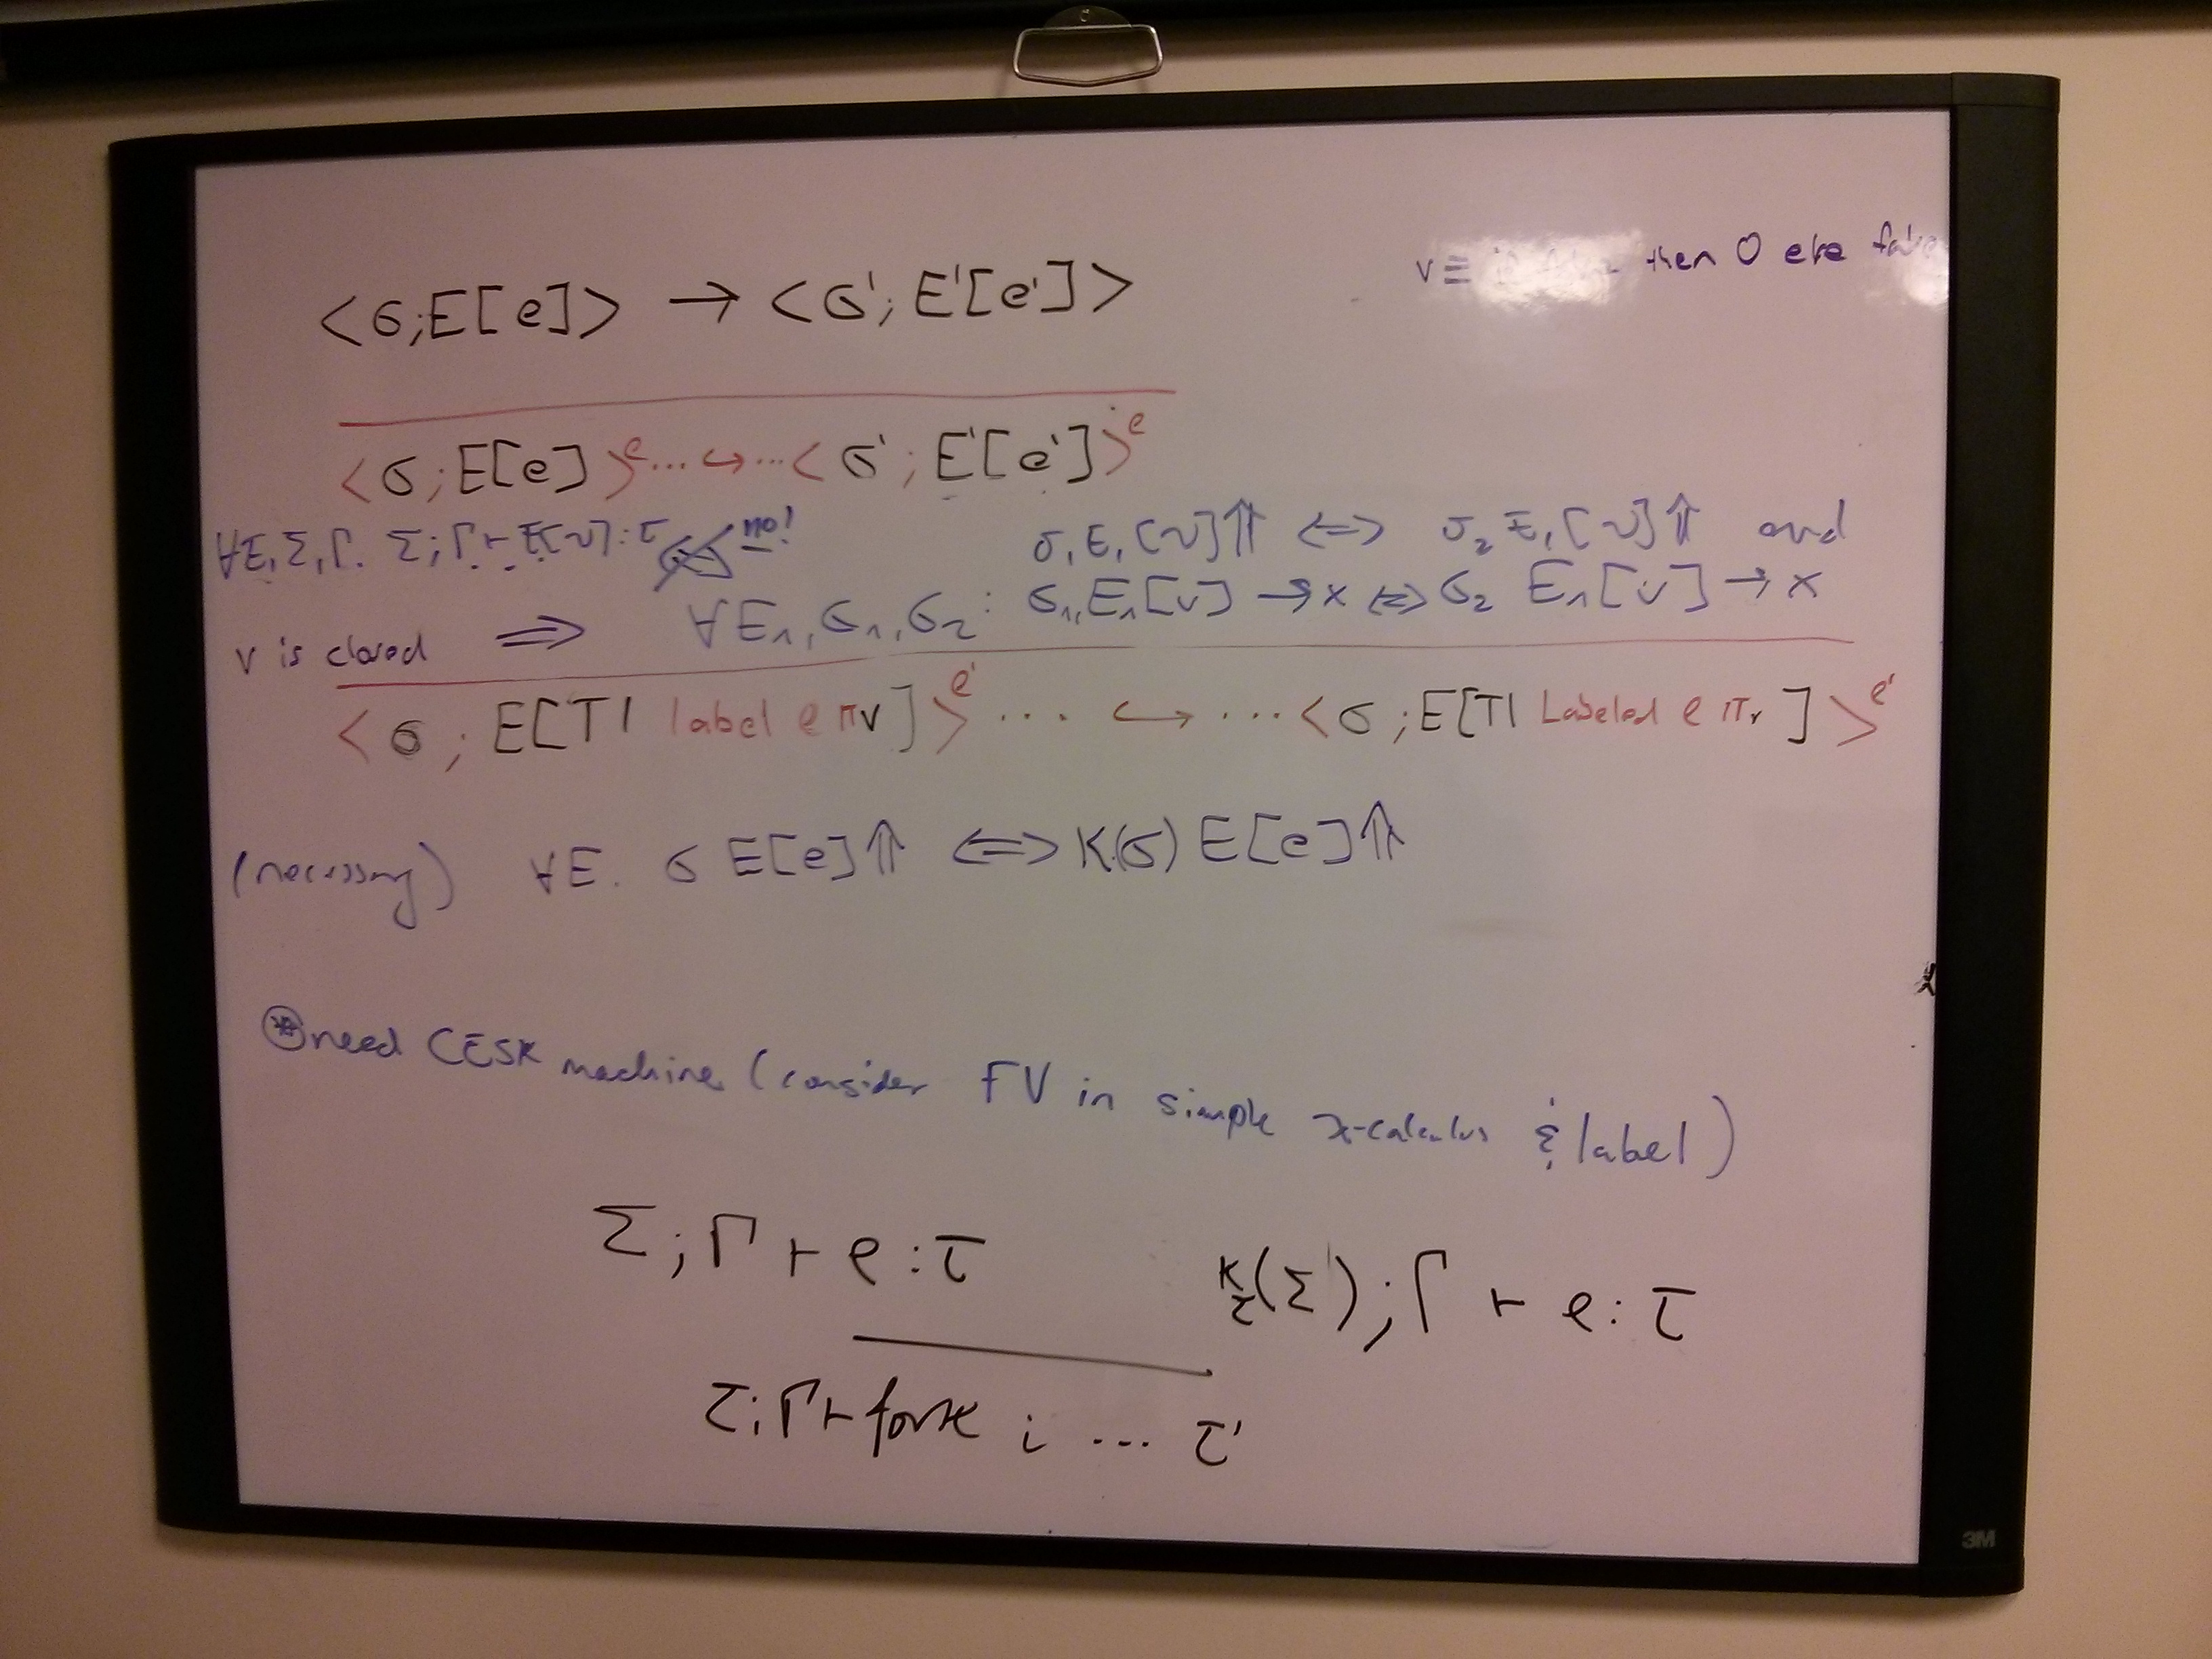 <σ;E[e]> → <σ';E'[e']>
v ≡ then 0 else false
<σ;E[e]>^e ... ↪ ... <σ';E'[e']>^e
∀E,Σ,Γ. Σ;Γ⊢E[v]:τ no!
σ₁E₁[v]⇑ ⇔ σ₂E₁[v]⇑ and
v is closed ⟹ ∀E₁,σ₁,σ₂: σ₁,E₁[v] → x ⇔ σ₂ E₁[v] → x
<σ;E[TI label e π v]>^e' .... ↪ ... <σ;E[TI Labeled e π v]>^e'
(necessary) ∀E. σ E[e]⇑ ⇔ K(σ) E[e]⇑
⊛ need CESK machine (consider FV in simple λ-calculus & label)
Σ;Γ ⊢ e:τ
K_Σ(Σ);Γ ⊢ e:τ
Σ;Γ⊢ fork i ... τ'
3M